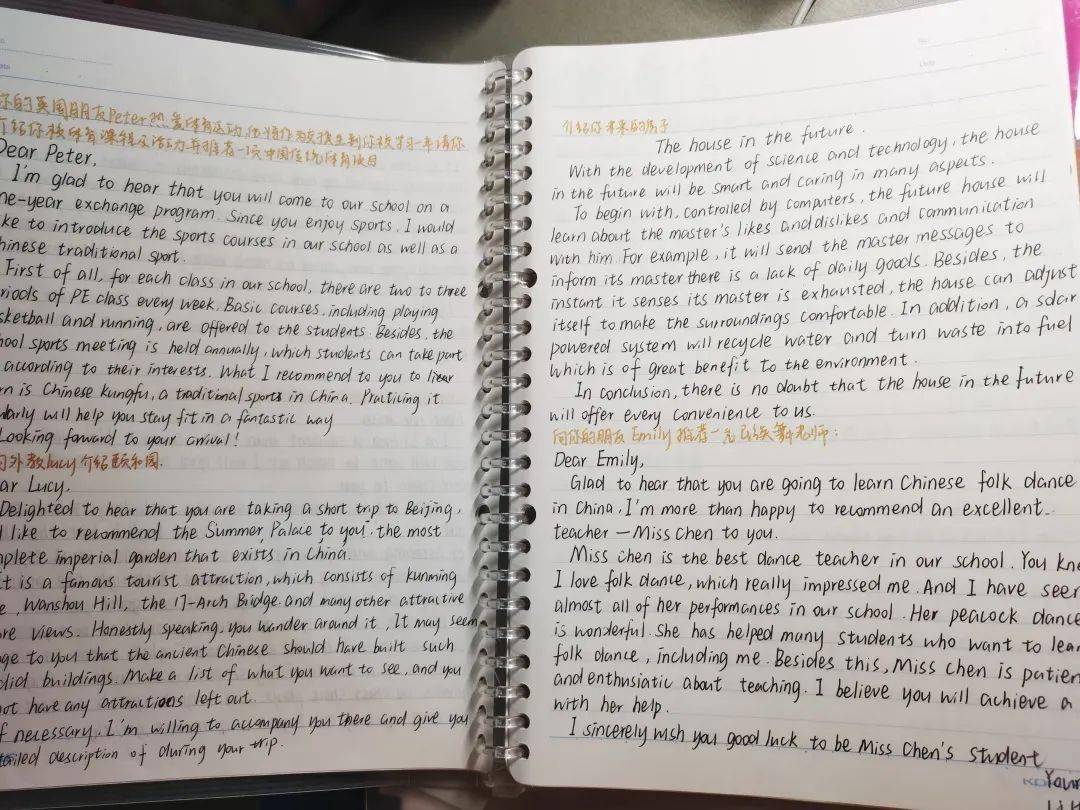 你的英国朋友Peter热爱体育运动,他将作为交换生到你校学习一年,请你
介绍你校体育课程及活动,并推荐一项中国传统体育项目
Dear Peter,
I'm glad to hear that you will come to our school on a
one-year exchange program. Since you enjoy sports, I would
like to introduce the sports courses in our school as well as a
Chinese traditional sport.
First of all, for each class in our school, there are two to three
periods of PE class every week. Basic courses, including playing
basketball and running, are offered to the students. Besides, the
school sports meeting is held annually, which students can take part
according to their interests. What I recommend to you to
rn is Chinese kungfu, a traditional sports in China. Practicing it
will help you stay fit in a fantastic way
Looking forward to your arrival!
向外教lucy介绍颐和园.
Dear Lucy,
Delighted to hear that you are taking a short trip to Beijing,
I like to recommend the Summer Palace to you, the most
complete imperial garden that exists in China.
It is a famous tourist attraction, which consists of kunming
Wanshou Hill, the 17-Arch Bridge and many other attractive
views. Honestly speaking, you wander around it, It may seem
to you that the ancient Chinese should have built such
buildings. Make a list of what you want to see, and you
not have any attractions left out.
If necessary, I'm willing to accompany you there and give you
detailed description of during your trip.
No.
Date
介绍你未来的房子
The house in the future.
With the development of science and technology, the house
in the future will be smart and caring in many aspects.
To begin with, controlled by computers, the future house will
learn about the master's likes and dislikes and communication
with him. For example, it will send the master messages to
inform its master there is a lack of daily goods. Besides, the
instant it senses its master is exhausted, the house can adjust
itself to make the surroundings comfortable. In addition, a solar
powered system will recycle water and turn waste into fuel
which is of great benefit to the environment.
In conclusion, there is no doubt that the house in the future
will offer every convenience to us.
向你的朋友Emily推荐一名民族舞老师:
Dear Emily,
Glad to hear that you are going to learn Chinese folk dance
in China, I'm more than happy to recommend an excellent
teacher — Miss Chen to you.
Miss chen is the best dance teacher in our school. You kne
I love folk dance, which really impressed me. And I have seen
almost all of her performances in our school. Her peacock dance
is wonderful. She has helped many students who want to lear
folk dance, including me. Besides this, Miss Chen is patien
and enthusiatic about teaching. I believe you will achieve a
with her help.
I sincerely wish you good luck to be Miss Chen's student
Your